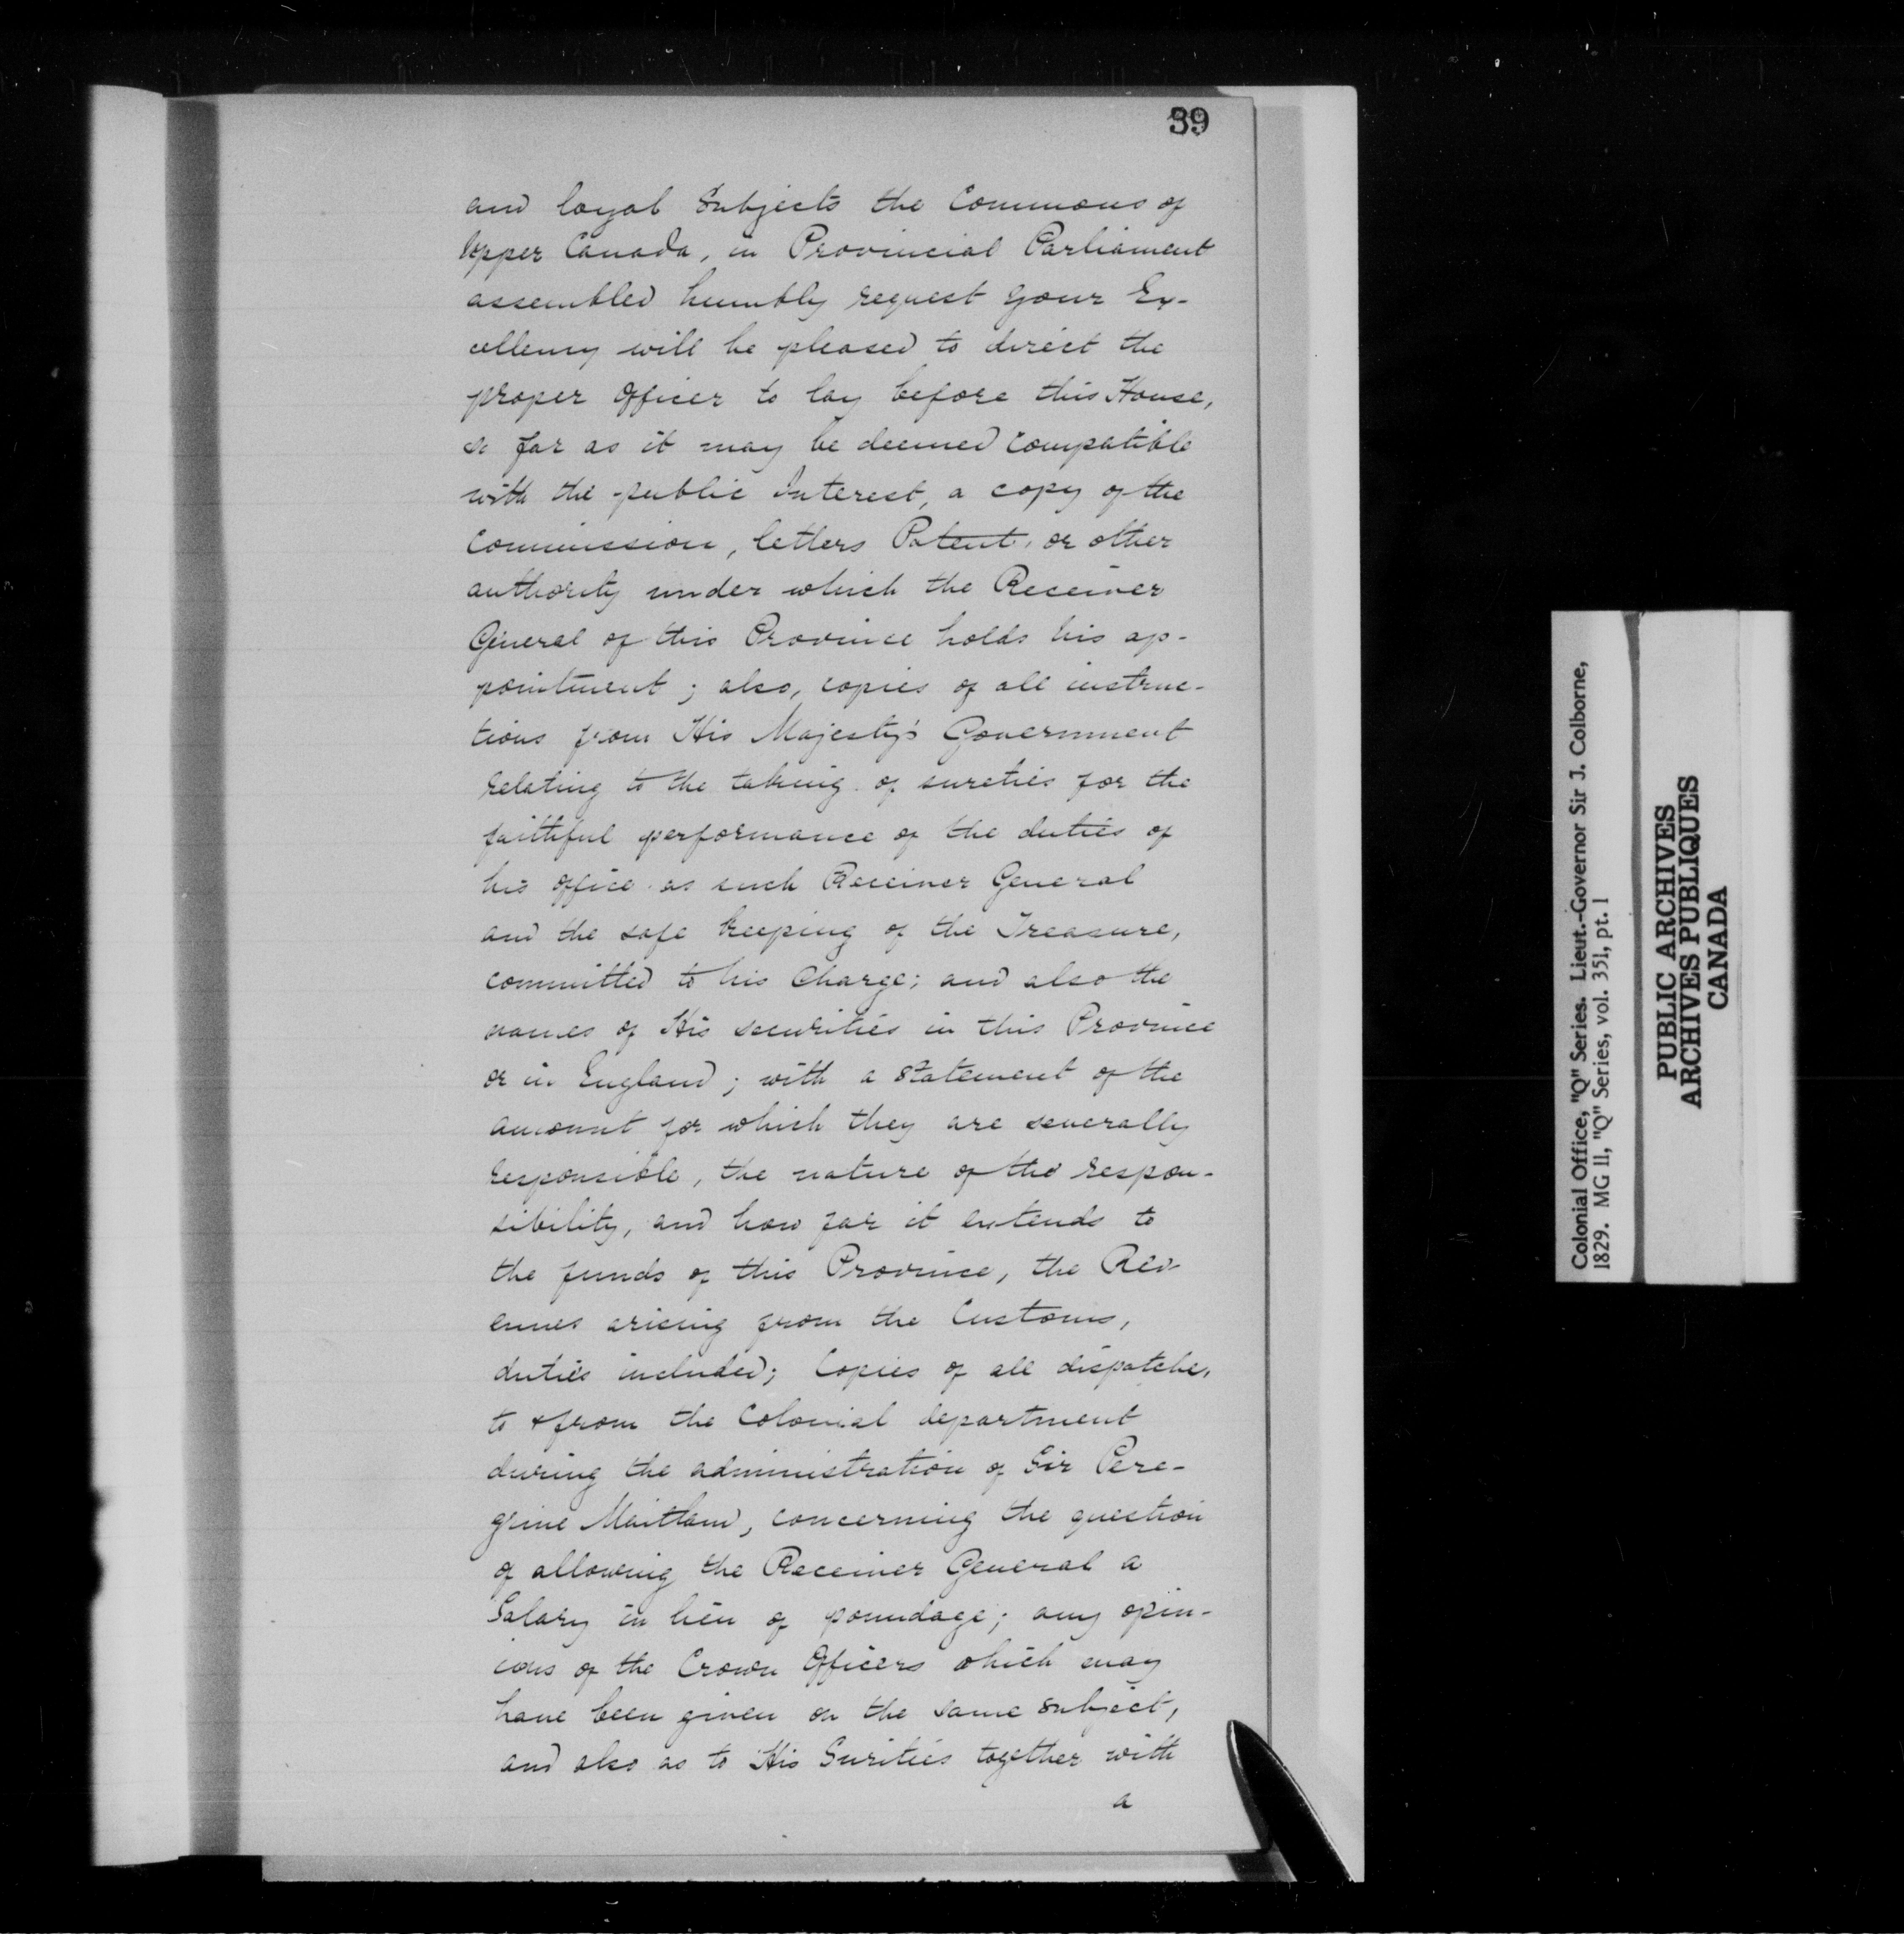 39
and loyal Subjects the Commons of
Upper Canada, in Provincial Parliament
assembled humbly request your Ex-
cellency will be pleased to direct the
proper Officer to lay before this House,
so far as it may be deemed compatible
with the public Interest, a copy of the
Commission, letters Patent, or other
authority under which the Receiver
General of this Province holds his ap-
pointment; also, copies of all instruc-
tions from His Majesty's Government
relating to the taking of sureties for the
faithful performance of the duties of
his office as such Receiver General
and the safe keeping of the Treasure,
committed to his Charge; and also the
names of His securities in this Province
or in England; with a statement of the
amount for which they are severally
responsible, the nature of the respon-
sibility, and how far it extends to
the funds of this Province, the Rev-
enues arising from the Customs,
duties included; Copies of all dispatches
to & from the Colonial department
during the administration of Sir Pere-
grine Maitland, concerning the question
of allowing the Receiver General a
Salary in lieu of poundage; any opin-
ions of the Crown Officers which may
have been given on the same subject,
and also as to His Surities together with
a
Colonial Office, "Q" Series. Lieut.-Governor Sir J. Colborne,
1829. MG 11, "Q" Series, vol. 351, pt. 1
PUBLIC ARCHIVES
ARCHIVES PUBLIQUES
CANADA